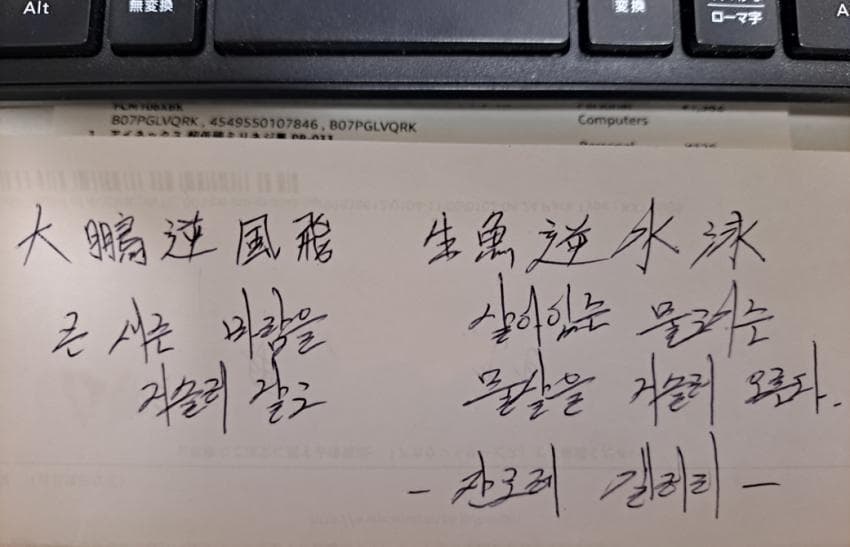 Alt
無変換
変換
ローマ字
B07PGLVQRK , 4549550107846 , B07PGLVQRK
Computers
大鵬逆風飛 生魚逆水泳
큰 새는 바람을 살아있는 물고기는
거슬러 날고 물살을 거슬러 오른다.